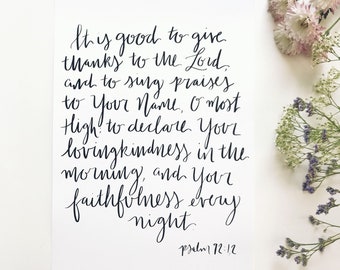 It is good to give
thanks to the Lord,
and to sing praises
to Your Name, O most
High, to declare Your
lovingkindness in the
morning, and Your
faithfulness every
night
psalm 92:12